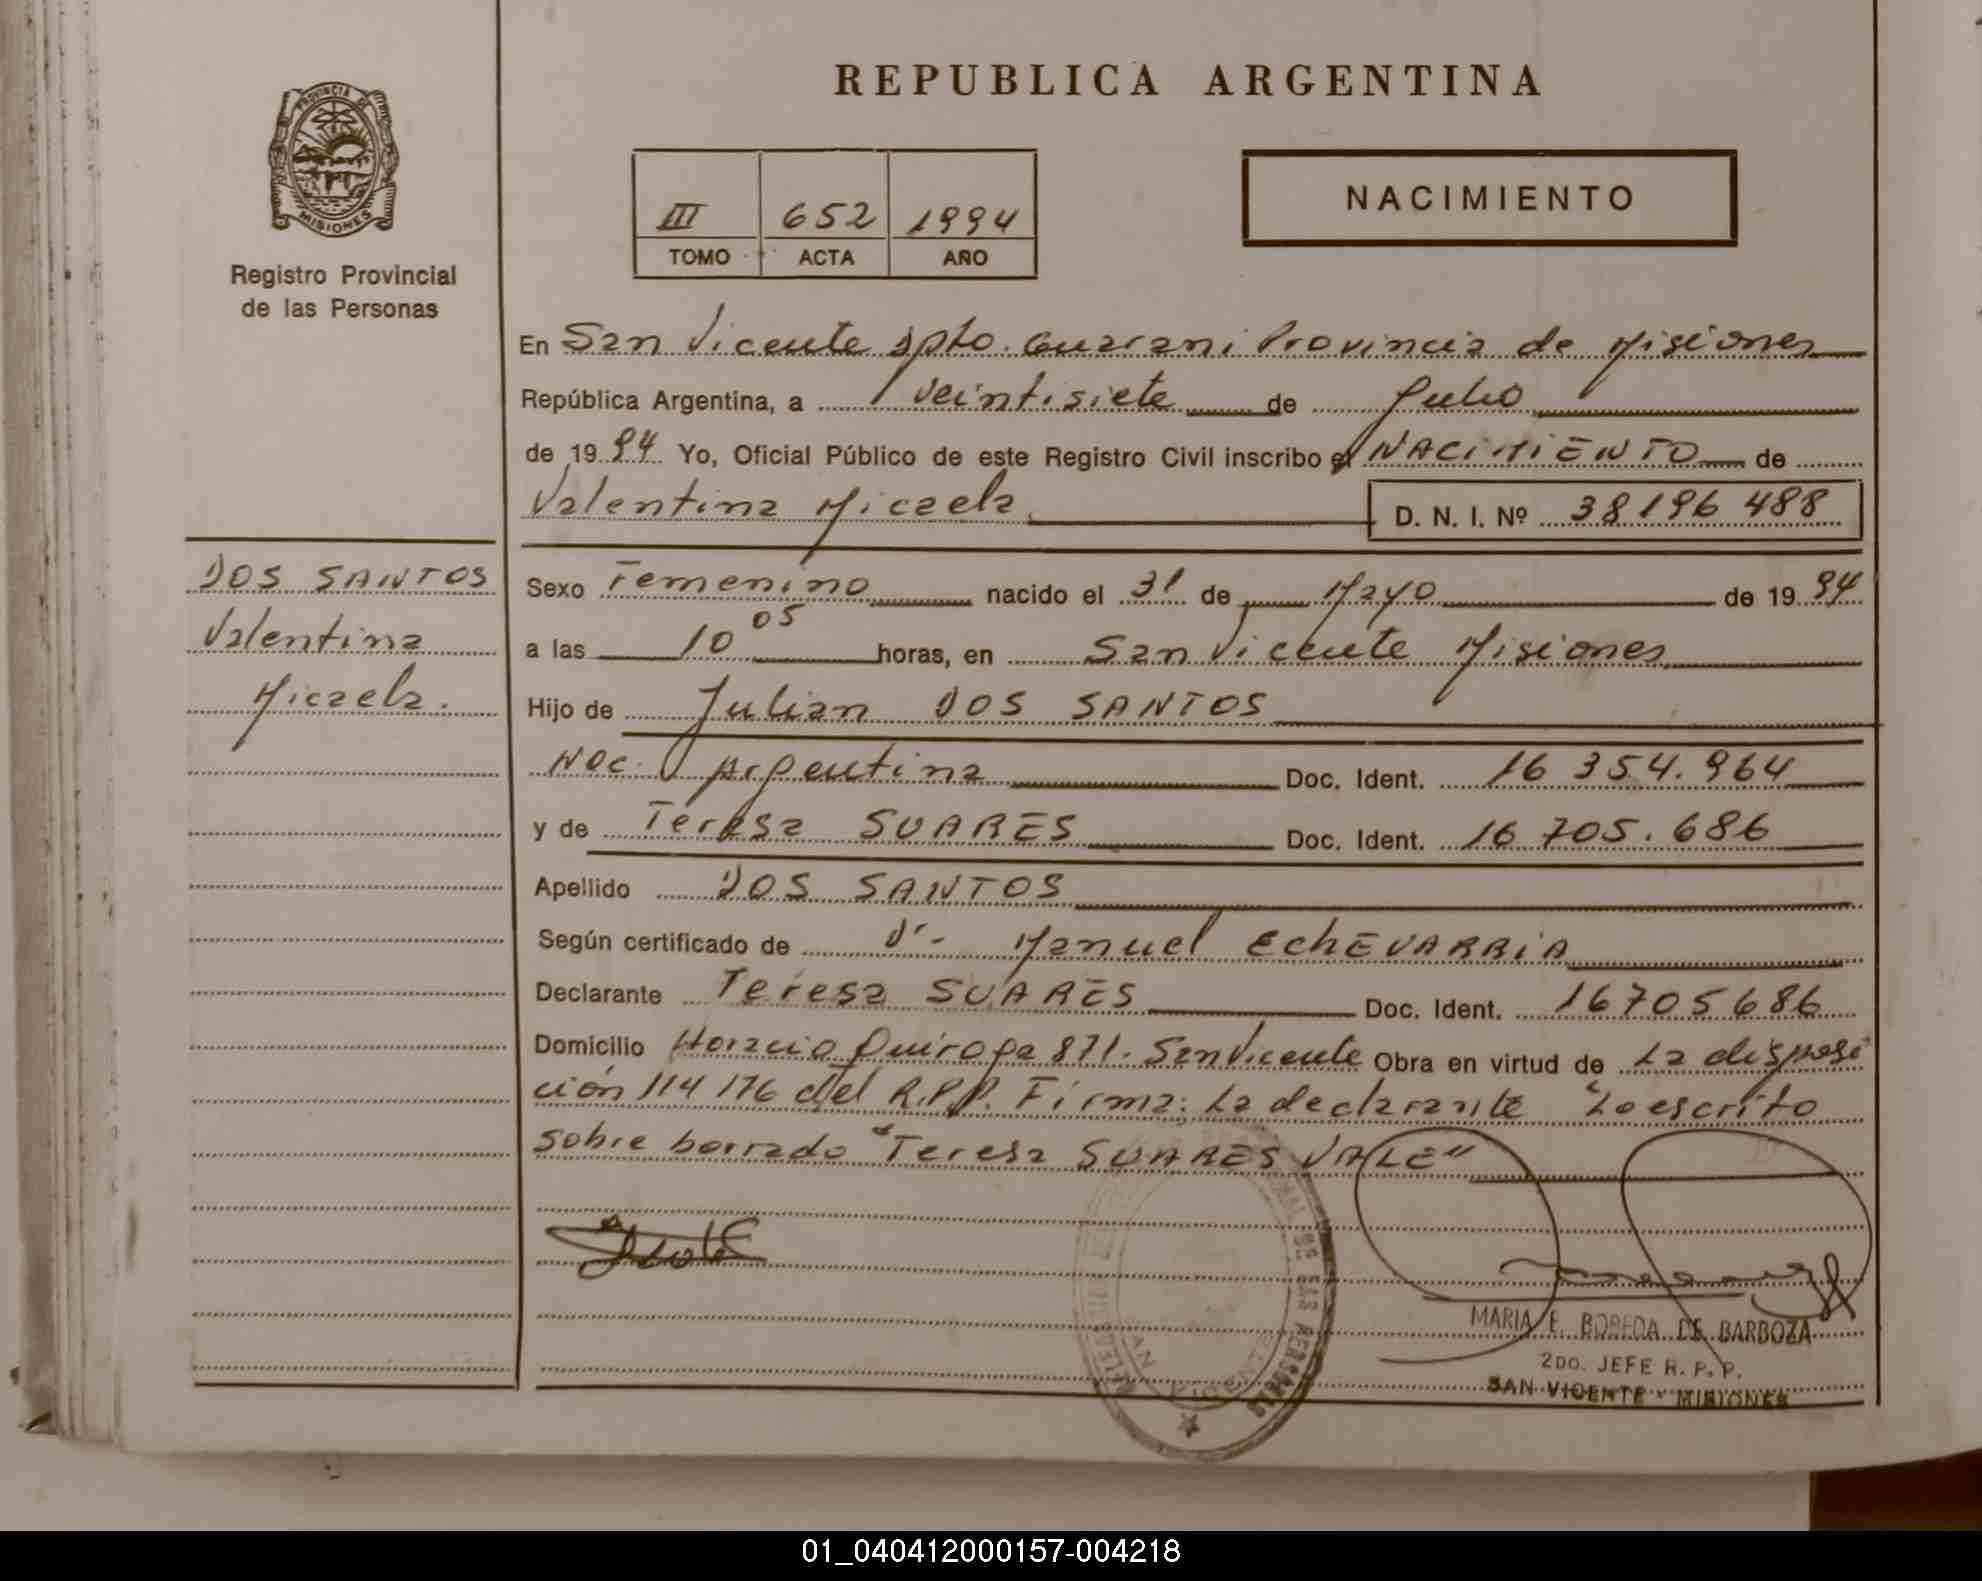 REPUBLICA ARGENTINA
PROVINCIA DE
MISIONES
Registro Provincial
de las Personas
III 652 1994
TOMO ACTA AÑO
NACIMIENTO
En San Vicente Dpto. Guarani Provincia de Misiones
República Argentina, a veintisiete de Julio
de 1994 Yo, Oficial Público de este Registro Civil inscribo el NACIMIENTO de
Valentina Micaela D. N. I. Nº 38196 488
DOS SANTOS
Valentina
Micaela.
Sexo Femenino nacido el 31 de Mayo de 1994
a las 10 05 horas, en San Vicente Misiones
Hijo de Julian DOS SANTOS
Nac. Argentina Doc. Ident. 16 354.964
y de Teresa SUARES Doc. Ident. 16 705.686
Apellido DOS SANTOS
Según certificado de Dr- Manuel EchEVARRiA
Declarante Teresa SUARES Doc. Ident. 16705686
Domicilio Horacio Quiroga 871. San Vicente Obra en virtud de La disposi
ción 114 176 del R.P.P. Firma: La declarante "Lo escrito
sobre borrado "Teresa SUARES VALE"
MARIA E. BOREDA DE BARBOZA
2DO. JEFE R. P. P.
SAN VICENTE - MISIONES
SAN VICENTE
01_040412000157-004218